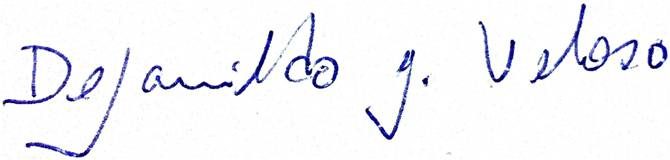 Dejanildo g. Veloso